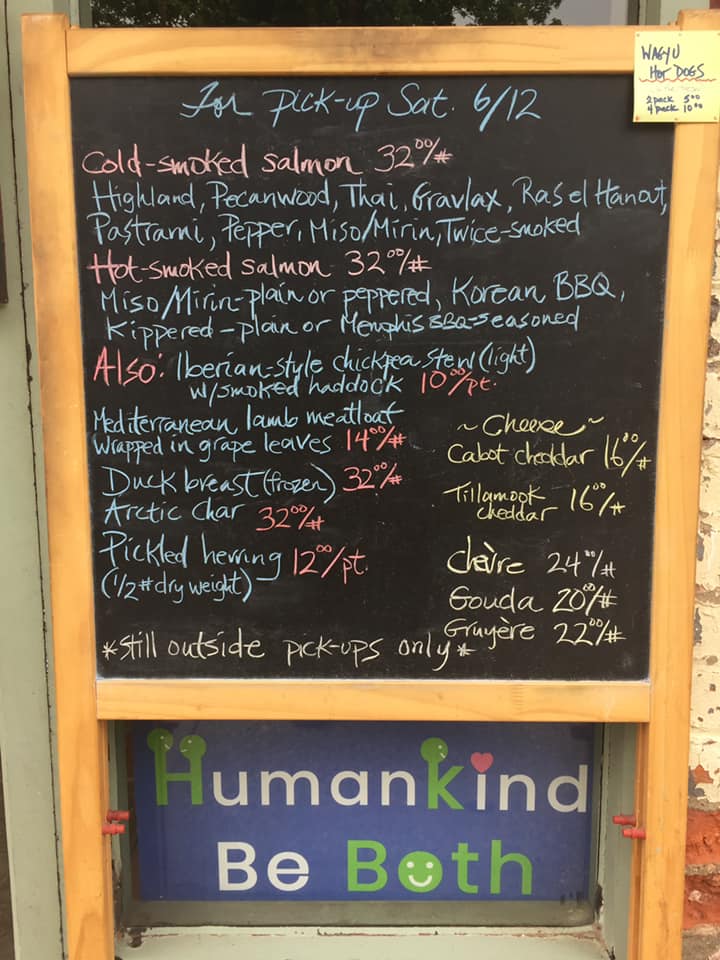 For pick-up Sat. 6/12
Cold-smoked salmon 32⁰⁰/#
Highland, Pecanwood, Thai, Gravlax, Ras el Hanout,
Pastrami, Pepper, Miso/Mirin, Twice-smoked
Hot-smoked salmon 32⁰⁰/#
Miso/Mirin-plain or peppered, Korean BBQ,
Kippered - plain or Memphis BBQ-seasoned
Also: Iberian-style chickpea stew (light)
w/smoked haddock 10⁰⁰/pt.
Mediterranean lamb meatloaf
wrapped in grape leaves 14⁰⁰/#
Duck breast (frozen) 32⁰⁰/#
Arctic char 32⁰⁰/#
Pickled herring 12⁰⁰/pt.
(1/2 # dry weight)
~Cheese~
Cabot cheddar 16⁰⁰/#
Tillamook
cheddar 16⁰⁰/#
chèvre 24⁰⁰/#
Gouda 20⁰⁰/#
Gruyère 22⁰⁰/#
*Still outside pick-ups only*
WAGYU
HOT DOGS
2 pack 5⁰⁰
4 pack 10⁰⁰
Humankind
Be Both